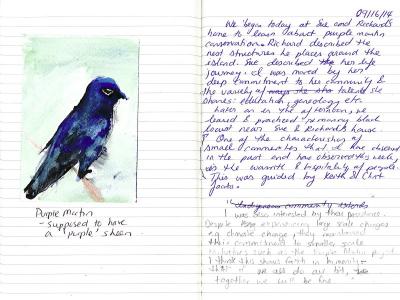 Purple Martin
- supposed to have
a 'purple' sheen
09/16/14
We began today at Sue and Richard's
home to learn about purple martin
conservation. Richard described the
nest structures he places around the
island. Sue described her life
journey. I was moved by her
deep commitment to her community &
the variety of talents she
shares: education, geneology etc.
Later on in the afternoon, we
learned & practiced removing black
locust near Sue & Richard's house.
One of the characteristics of
small communities that I have observed
in the past and have observed this week,
is the warmth & hospitality of people.
This was guided by Keith &
I was also interested by their
Despite experiencing large scale changes
e.g. climate change they
their commitment to smaller scale
such as the Purple Martin
I think this shows faith in humanity -
that if we all do our bit,
together we will be fine